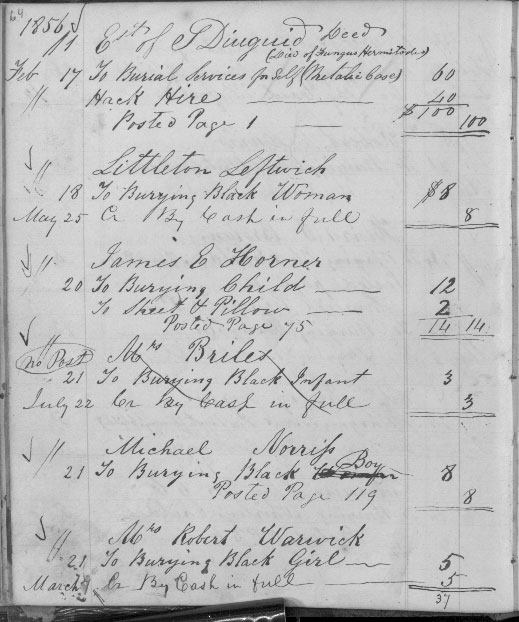 64
1856
" Est of S Diuguid Decd
(Died of Fungus Hermitodes)
Feb 17 To Burial Services for Self (Metalic Case) 60
" Hack Hire 40
Posted Page 1 $100 100
" Littleton Leftwich
18 To Burying Black Woman $8
May 25 Cr By Cash in full 8
" James E Horner
20 To Burying Child 12
To Sheet & Pillow 2
Posted Page 75 14 14
" Mrs Briles
no Post
21 To Burying Black Infant 3
July 22 Cr By Cash in full 3
" Michael Norriss
21 To Burying Black Boy 8
Posted Page 119 8
" Mrs Robert Warwick
21 To Burying Black Girl 5
March Cr By Cash in full 5
37